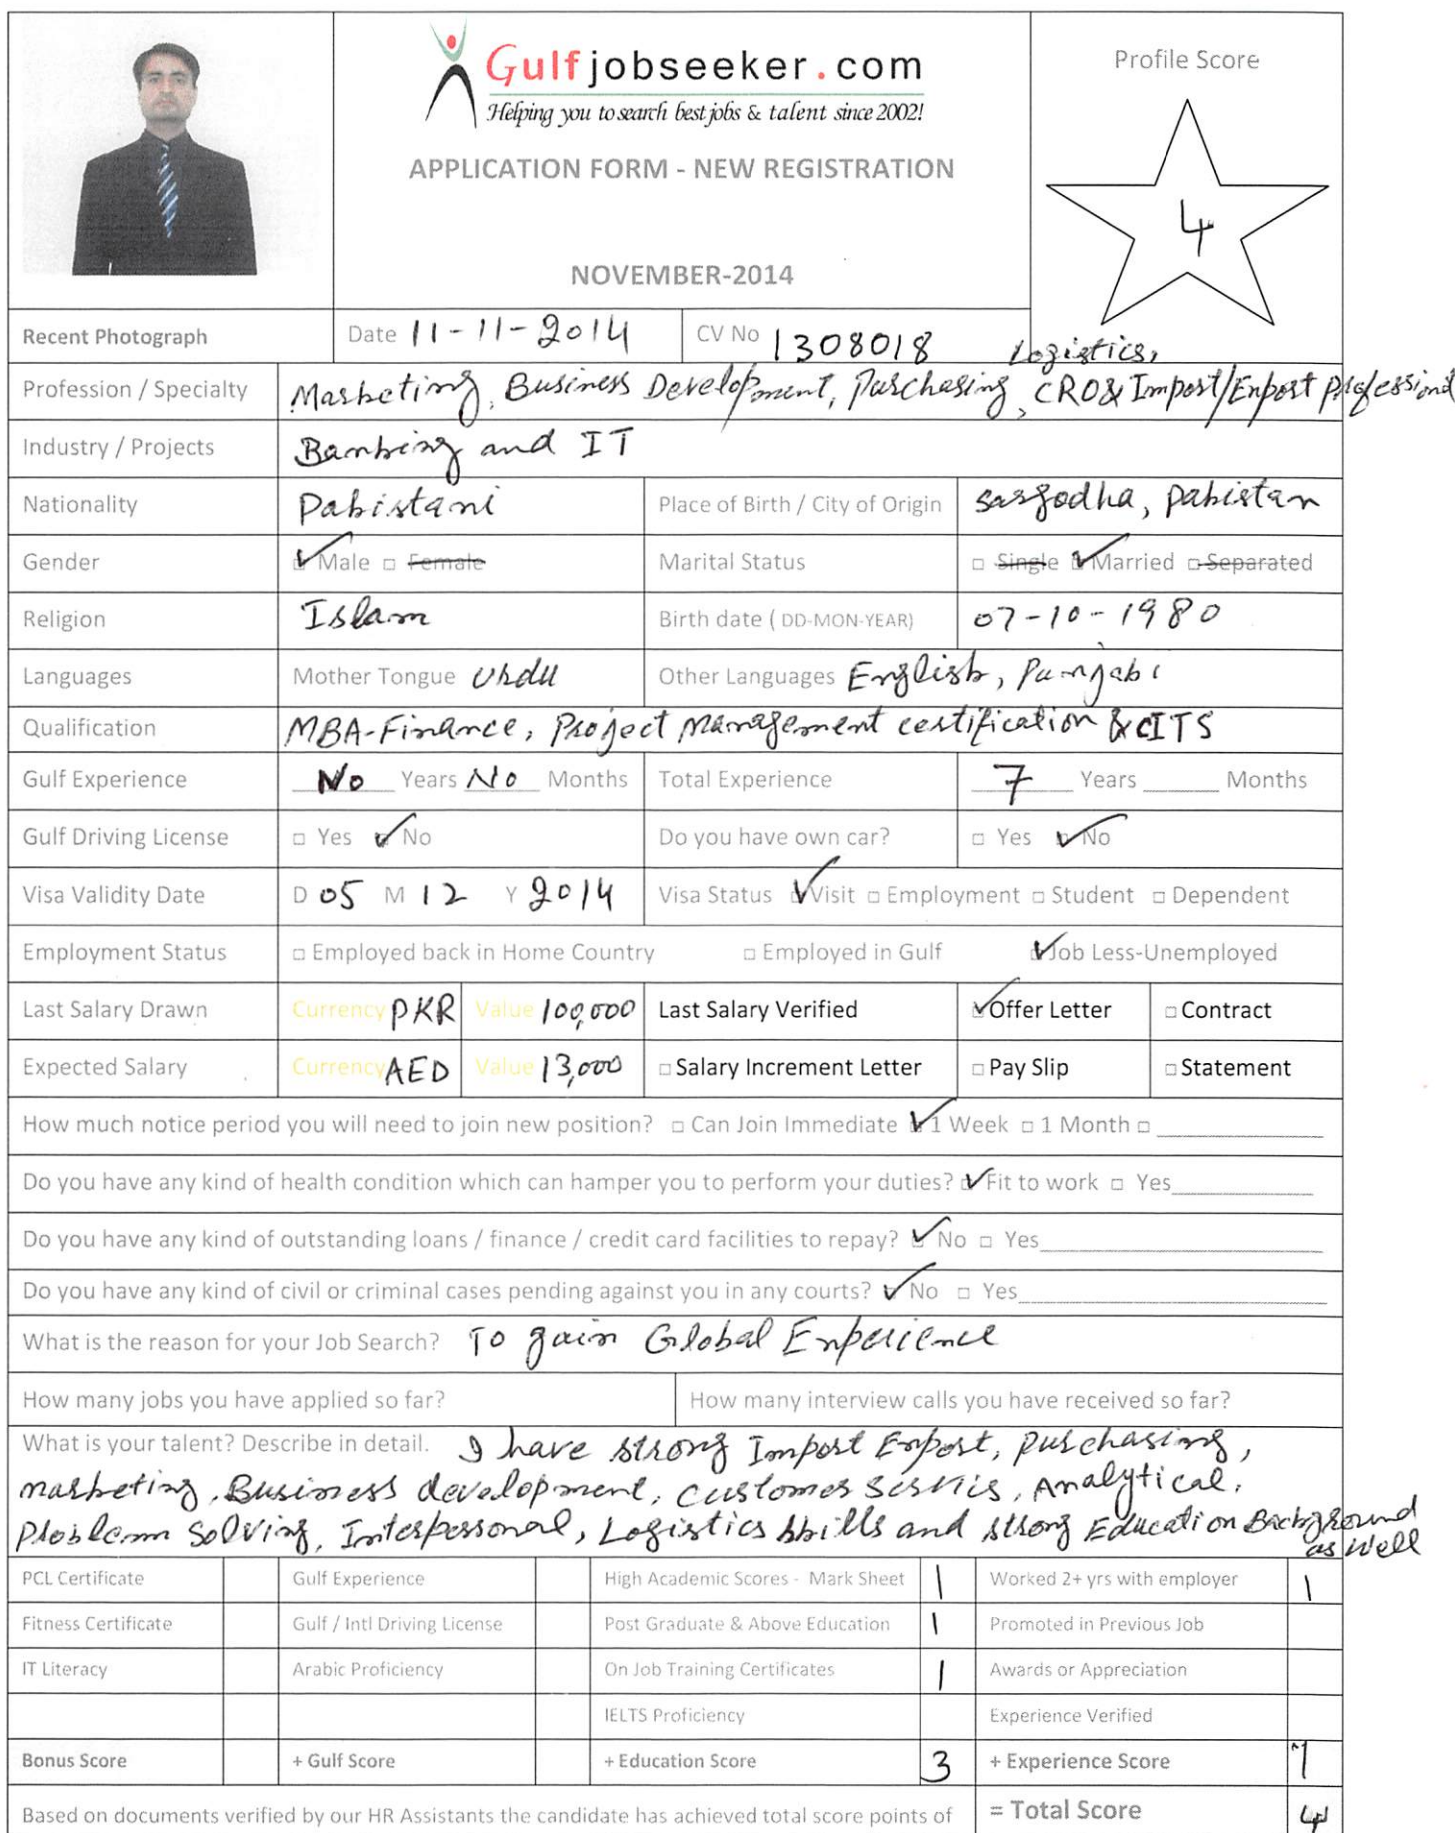 Gulfjobseeker.com
Helping you to search best jobs & talent since 2002!
APPLICATION FORM - NEW REGISTRATION
NOVEMBER-2014
Profile Score
4
Recent Photograph
Date 11-11-2014
CV No 1308018
Logistics,
Profession / Specialty Marketing, Business Development, Purchasing, CRO & Import/Export Professional
Industry / Projects Banking and IT
Nationality Pakistani Place of Birth / City of Origin Sargodha, Pakistan
Gender ☑ Male □ Female Marital Status □ Single ☑ Married □ Separated
Religion Islam Birth date ( DD-MON-YEAR) 07-10-1980
Languages Mother Tongue Urdu Other Languages English, Punjabi
Qualification MBA-Finance, Project Management certification & CITS
Gulf Experience No Years No Months Total Experience 7 Years ______ Months
Gulf Driving License □ Yes ☑ No Do you have own car? □ Yes ☑ No
Visa Validity Date D 05 M 12 Y 2014 Visa Status ☑ Visit □ Employment □ Student □ Dependent
Employment Status □ Employed back in Home Country □ Employed in Gulf ☑ Job Less-Unemployed
Last Salary Drawn Currency PKR Value 100,000 Last Salary Verified ☑ Offer Letter □ Contract
Expected Salary Currency AED Value 13,000 □ Salary Increment Letter □ Pay Slip □ Statement
How much notice period you will need to join new position? □ Can Join Immediate ☑ 1 Week □ 1 Month □ ______
Do you have any kind of health condition which can hamper you to perform your duties? ☑ Fit to work □ Yes______
Do you have any kind of outstanding loans / finance / credit card facilities to repay? ☑ No □ Yes______
Do you have any kind of civil or criminal cases pending against you in any courts? ☑ No □ Yes______
What is the reason for your Job Search? To gain Global Experience
How many jobs you have applied so far? How many interview calls you have received so far?
What is your talent? Describe in detail. I have strong Import Export, purchasing,
marketing, Business development, Customer Service, Analytical,
Problem Solving, Interpersonal, Logistics skills and strong Education Background
as well
PCL Certificate Gulf Experience High Academic Scores - Mark Sheet 1 Worked 2+ yrs with employer 1
Fitness Certificate Gulf / Intl Driving License Post Graduate & Above Education 1 Promoted in Previous Job
IT Literacy Arabic Proficiency On Job Training Certificates 1 Awards or Appreciation
IELTS Proficiency Experience Verified
Bonus Score + Gulf Score + Education Score 3 + Experience Score 1
Based on documents verified by our HR Assistants the candidate has achieved total score points of = Total Score 4